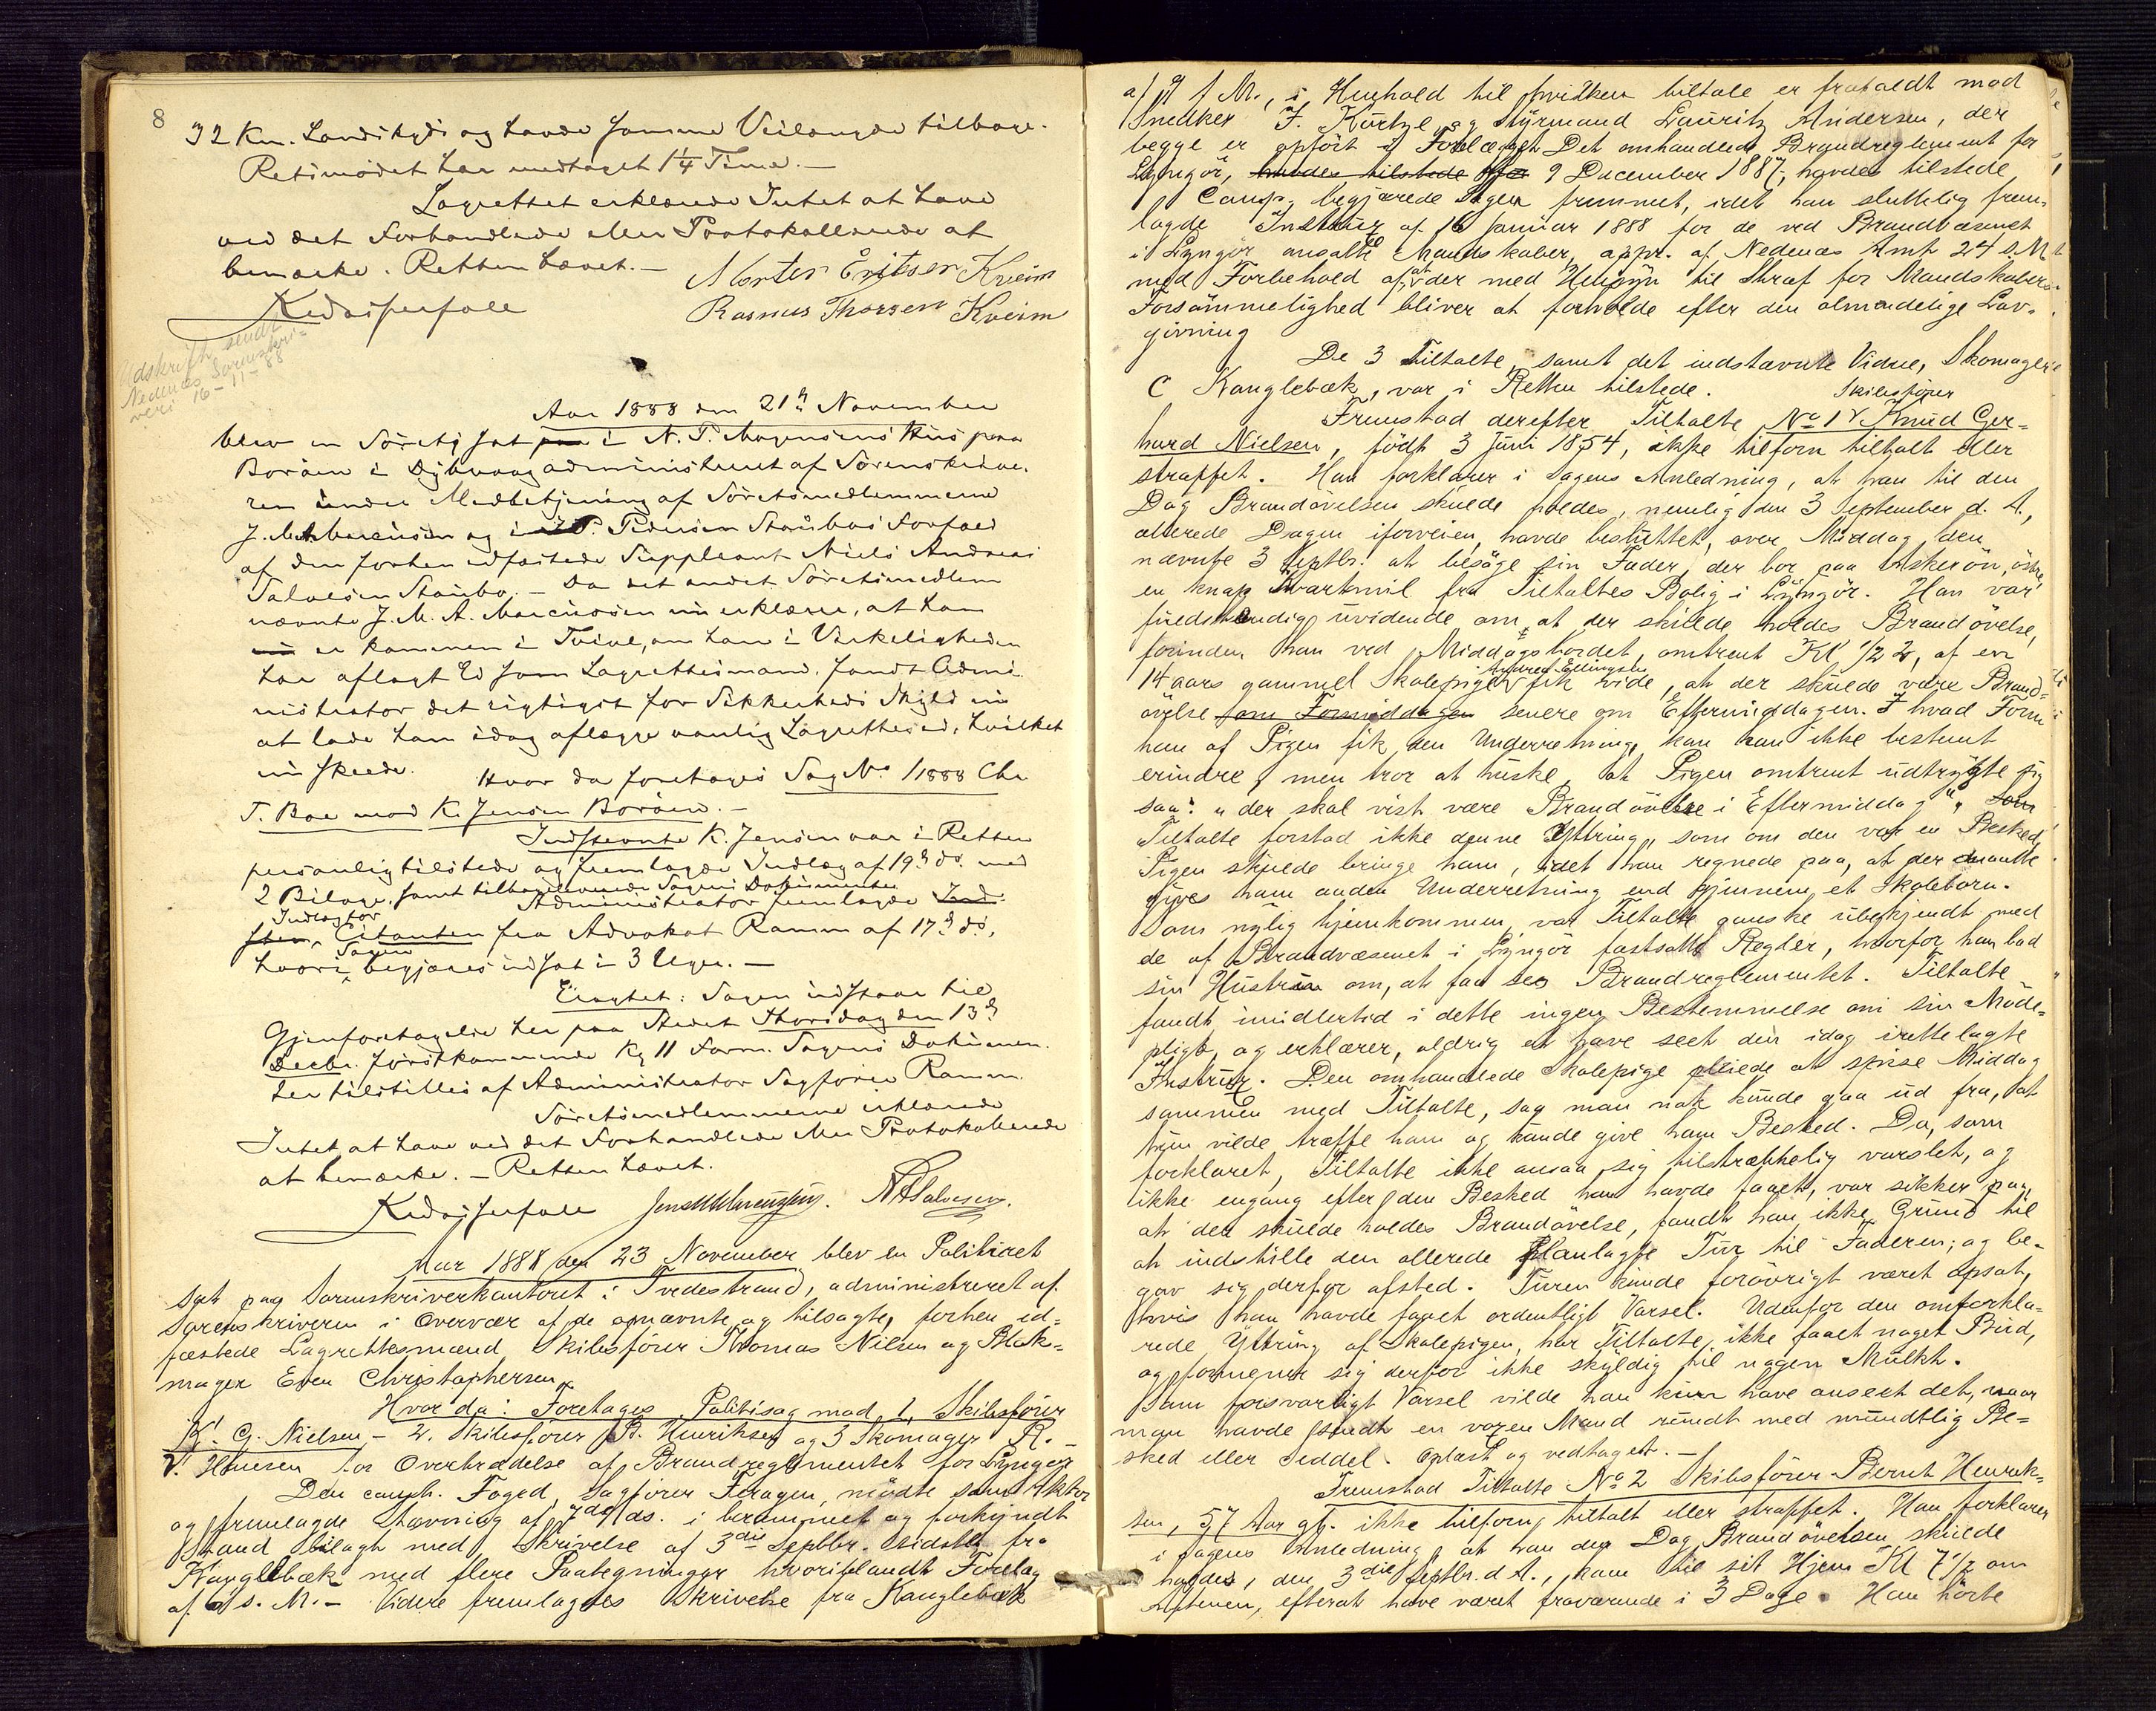 8
32 Km. Landskyds og havde samme Veilængde tilbage.
Retsmødet har medtaget 1¼ Time. —
Lagrettet erklærede Intet at have
ved det Forhandlede eller Protokollerede at
bemærke. Retten hævet. —
Morten Eriksen Kveim
Rasmus Thorsen Kveim
Udskrift sendt
Nedenæs Sorenskri-
veri 16-11-88
Aar 1888 den 21de November
blev en Söret sat i N. P. Mogensens Hus paa
Boröen i Dybvaag administreret af Sörenskrive-
ren under Medbetjening af Söretsmedlemmerne
J. M. A. Marcussen og i P. Pedersen Staubös Forfald
af den forhen edfæstede Suppleant Niels Andreas
Salvesen Staubø. — Da det andet Söretsmedlem
nævnte J. M. A. Marcussen nu erklærer, at han
er kommen i Tvivl, om han i Virkeligheden
har aflagt Ed som Lagrettesmand, fandt Admi-
nistrator det rigtigst for Sikkerheds Skyld nu
at lade ham idag aflægge vanlig Lagretteed, hvilket
nu skeede. Hvor da foretoges Sag No 1/1888 Chr
T. Boe mod K. Jensen Boröen. —
Indstevnte K. Jensen var i Retten
personlig tilstede og fremlagde Indlæg af 19de ds. med
2 Bilage, samt tilbageleverede Sagens Dokumenter
Administrator fremlagde Ind-
Indlæg for
stev. Citanten fra Advokat Ramm af 17de ds,
Sagen
hvori begjæres udsat i 3 Uger. —
Eragtet: Sagen udstaar til
Gjenforetagelse her paa Stedet Thorsdag den 13de
Decbr. förstkommende Kl 11 Form. Sagens Dokumen-
ter tilstilles af Administrator Sagförer Ramm.
Söretsmedlemmerne erklærede
Intet at have ved det Forhandlede eller Protokollerede
at bemærke. — Retten hævet.
Jens M A Marcussen. N A Salvesen.
Aar 1888 den 23 November blev en Politiret
sat paa Sorenskriverkontoret i Tvedestrand, administreret af
Sorenskriveren i Overvær af de opnævnte og tilsagte, forhen ed-
fæstede Lagrettesmænd Skibsförer Thomas Nilsen og Blok-
mager Even Christophersen.
Hvor da: Foretoges Politisag mod 1, Skibsförer
K. G. Nielsen — 2. Skibsförer B. Henriksen og 3 Skomager R.
V. Hansen for Overtrædelse af Brandreglementet for Lyngör
Den const. Foged, Sagförer Feragen, mödte som Aktor
og fremlagde Stævning af 7de ds. i berammet og forkyndt
Stand bilagt med Skrivelse af 3die Septbr. sidstl. fra
Kanglebæk med flere Paategninger hvoriblandt Forelæg
af s. M. — Videre fremlagdes Skrivelse fra Kanglebæk
af f. M., i Henhold til hvilken tiltale er frafaldt mod
Snedker F. Kürtze og Styrmand Lauritz Andersen, der
begge er opfört i Forelægget. Det omhandlede Brandreglement for
Lyngör, havdes tilstede af 9 December 1887, havdes tilstede
Comp. begjærede Sagen fremmet, idet han sluttelig frem-
lagde Instrux af 16 Januar 1888 for de ved Brandvæsenet
i Lyngör ansatte Mandskaber, appr. af Nedenæs Amt 24 s. M.
med Forbehold af, at der med Hensyn til Straf for Mandskabers
Forsömmelighed bliver at forholde efter den almindelige Lov-
givning
De 3 Tiltalte, samt det indstævnte Vidne, Skomager
C Kanglebæk, var i Retten tilstede.
Skibsförer
Fremstod derefter Tiltalte No 1 Knud Ger-
hard Nielsen, födt 3 Juni 1854, ikke tilforn tiltalt eller
straffet. Han forklarer i Sagens Anledning, at han til den
Dag Brandövelsen skulde holdes, nemlig den 3 September d. A.,
allerede Dagen iforveien, havde besluttet, over Middag den
nævnte 3 Septbr. at besöge sin Fader, der bor paa Askerön, östre,
en knap Kvartmil fra Tiltaltes Bolig i Lyngör. Han var
fuldstændig uvidende om, at der skulde holdes Brandövelse,
forinden han ved Middagsbordet, omtrent Kl 1/2 2, af en
Andrea Ellingsen
14 aars gammel Skolepige fik vide, at der skulde være Brand-
övelse om Formiddagen senere om Eftermiddagen. I hvad Form
han af Pigen fik den Underretning, kan han ikke bestemt
erindre, men tror at huske, at Pigen omtrent udtrykte sig
saa: „der skal vist være Brandövelse i Eftermiddag“. Som
Tiltalte forstod ikke denne Yttring, som om den var en Besked
Pigen skulde bringe ham, idet han regnede paa, at der maatte
gives ham anden Underretning end gjennem et Skolebarn.
Som nylig hjemkommen, var Tiltalte ganske ubekjendt med
de af Brandvæsenet i Lyngör fastsatte Regler, hvorfor han bad
sin Hustru om, at faa see Brandreglementet. Tiltalte
fandt imidlertid i dette ingen Bestemmelse om sin Möde-
pligt, og erklærer, aldrig at have seet den idag irettelagte
Instrux. Den omhandlede Skolepige pleiede at spise Middag
sammen med Tiltalte, saa man nok kunde gaa ud fra, at
hun vilde træffe ham og kunde give ham Besked. Da, som
forklaret, Tiltalte ikke ansaa sig tilstrækkelig varslet, og
ikke engang efter den Besked han havde faaet, var sikker paa,
at der skulde holdes Brandövelse, fandt han ikke Grund til
at indstille den allerede planlagte Tur til Faderen; og be-
gav sig derfor afsted. Turen kunde forövrigt været opsat,
hvis han havde faaet ordentligt Varsel. Udenfor den omforkla-
rede Yttring af Skolepigen, har Tiltalte ikke faaet noget Bud,
og formener sig derfor ikke skyldig til nogen Mulkt.
Som forsvarligt Varsel vilde han kun have anseet det, naar
man havde sendt en voxen Mand rundt med mundtlig Be-
sked eller Seddel. Oplæst og vedtaget. —
Fremstod Tiltalte No 2 Skibsförer Bernt Henrik-
sen, 57 Aar gl. ikke tilforn tiltalt eller straffet. Han forklarer
i Sagens Anledning, at han den Dag Brandövelsen skulde
holdes, den 3die Septbr. d. A., kom til sit Hjem Kl 7 1/2 om
Aftenen, efterat have været fraværende i 3 Dage. Han hörte